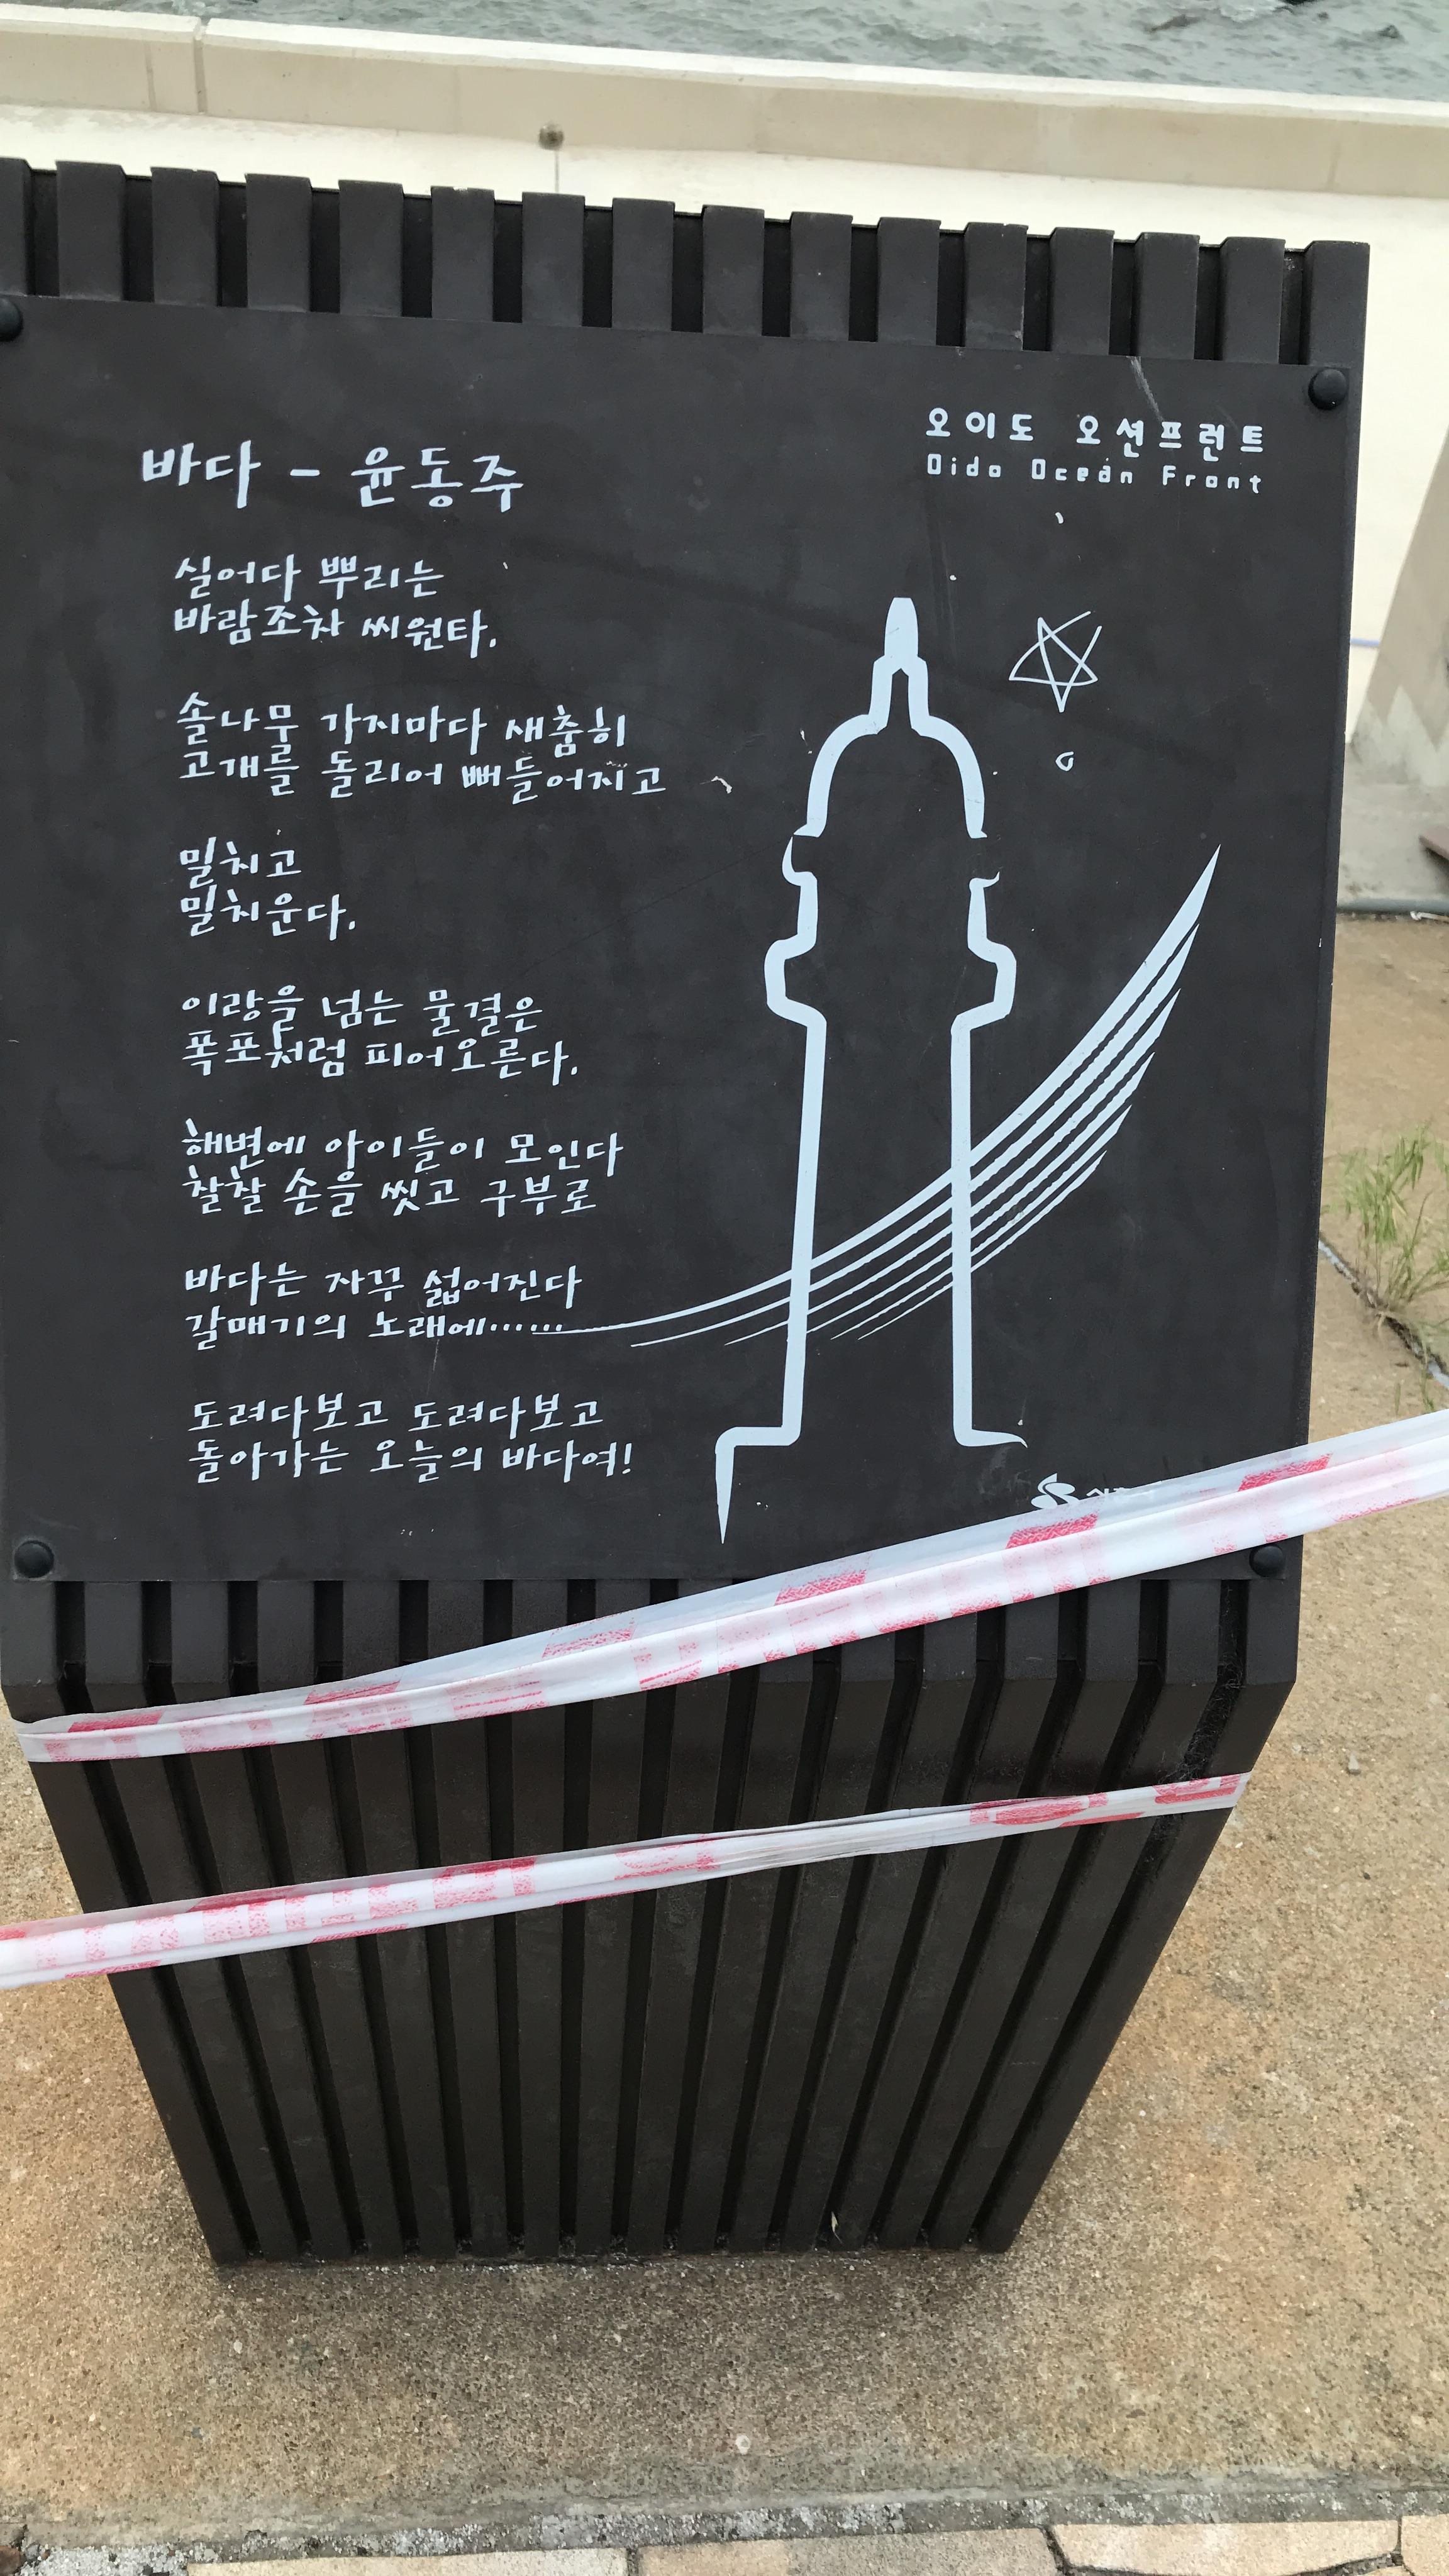 오이도 오션프런트
Oido Ocean Front
바다 - 윤동주
실어다 뿌리는
바람조차 씨원타.
솔나무 가지마다 새춤히
고개를 돌리어 뻐들어지고
밀치고
밀치운다.
이랑을 넘는 물결은
폭포처럼 피어오른다.
해변에 아이들이 모인다
찰찰 손을 씻고 구부로
바다는 자꾸 섧어진다
갈매기의 노래에······
도려다보고 도려다보고
돌아가는 오늘의 바다여!